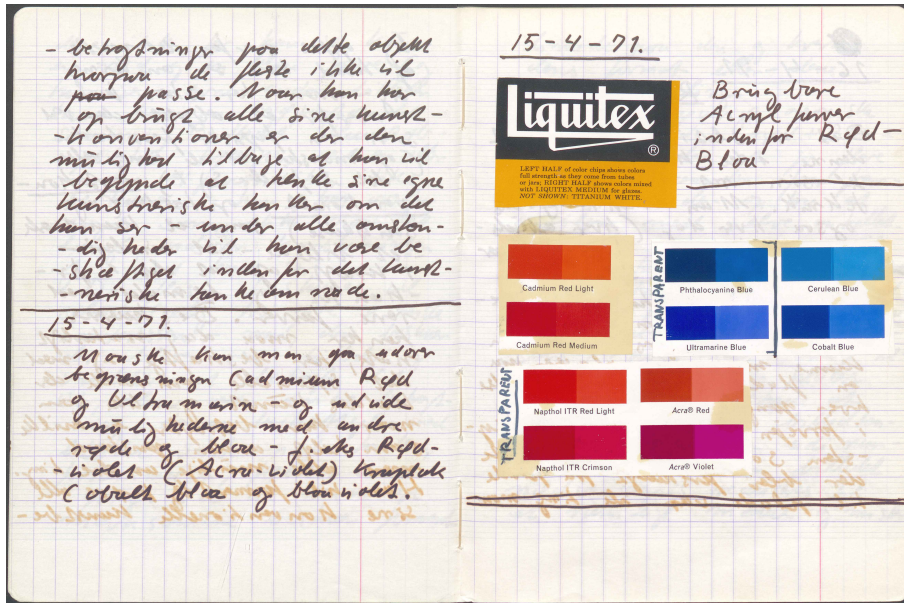 - betragtninger paa dette objekt
hvorpaa de fleste ikke vil
paa passe. Naar han har
op brugt alle sine kunst-
-konventioner er der den
mulighed tilbage at han vil
begynde at tænke sine egne
kunstneriske tanker om det
han ser - under alle omstæn-
-dig heder vil han være be
-skæftiget inden for det kunst-
-neriske tankeomraade.
15-4-71.
Maaske kan man gaa udover
begrænsningen Cadmium Rød
og Ultramarin - og udvide
mulighederne med andre
røde og blaa - f.eks Rød-
-violet (Acra-violet) Kraplak
Cobalt blaa og blaaviolet.
15-4-71.
Liquitex ®
LEFT HALF of color chips shows colors
full strength as they come from tubes
or jars; RIGHT HALF shows colors mixed
with LIQUITEX MEDIUM for glazes.
NOT SHOWN: TITANIUM WHITE.
Brugbare
Acryl farver
inden for Rød-
Blaa
Cadmium Red Light
Cadmium Red Medium
TRANSPARENT
Phthalocyanine Blue
Cerulean Blue
Ultramarine Blue
Cobalt Blue
TRANSPARENT
Napthol ITR Red Light
Acra® Red
Napthol ITR Crimson
Acra® Violet